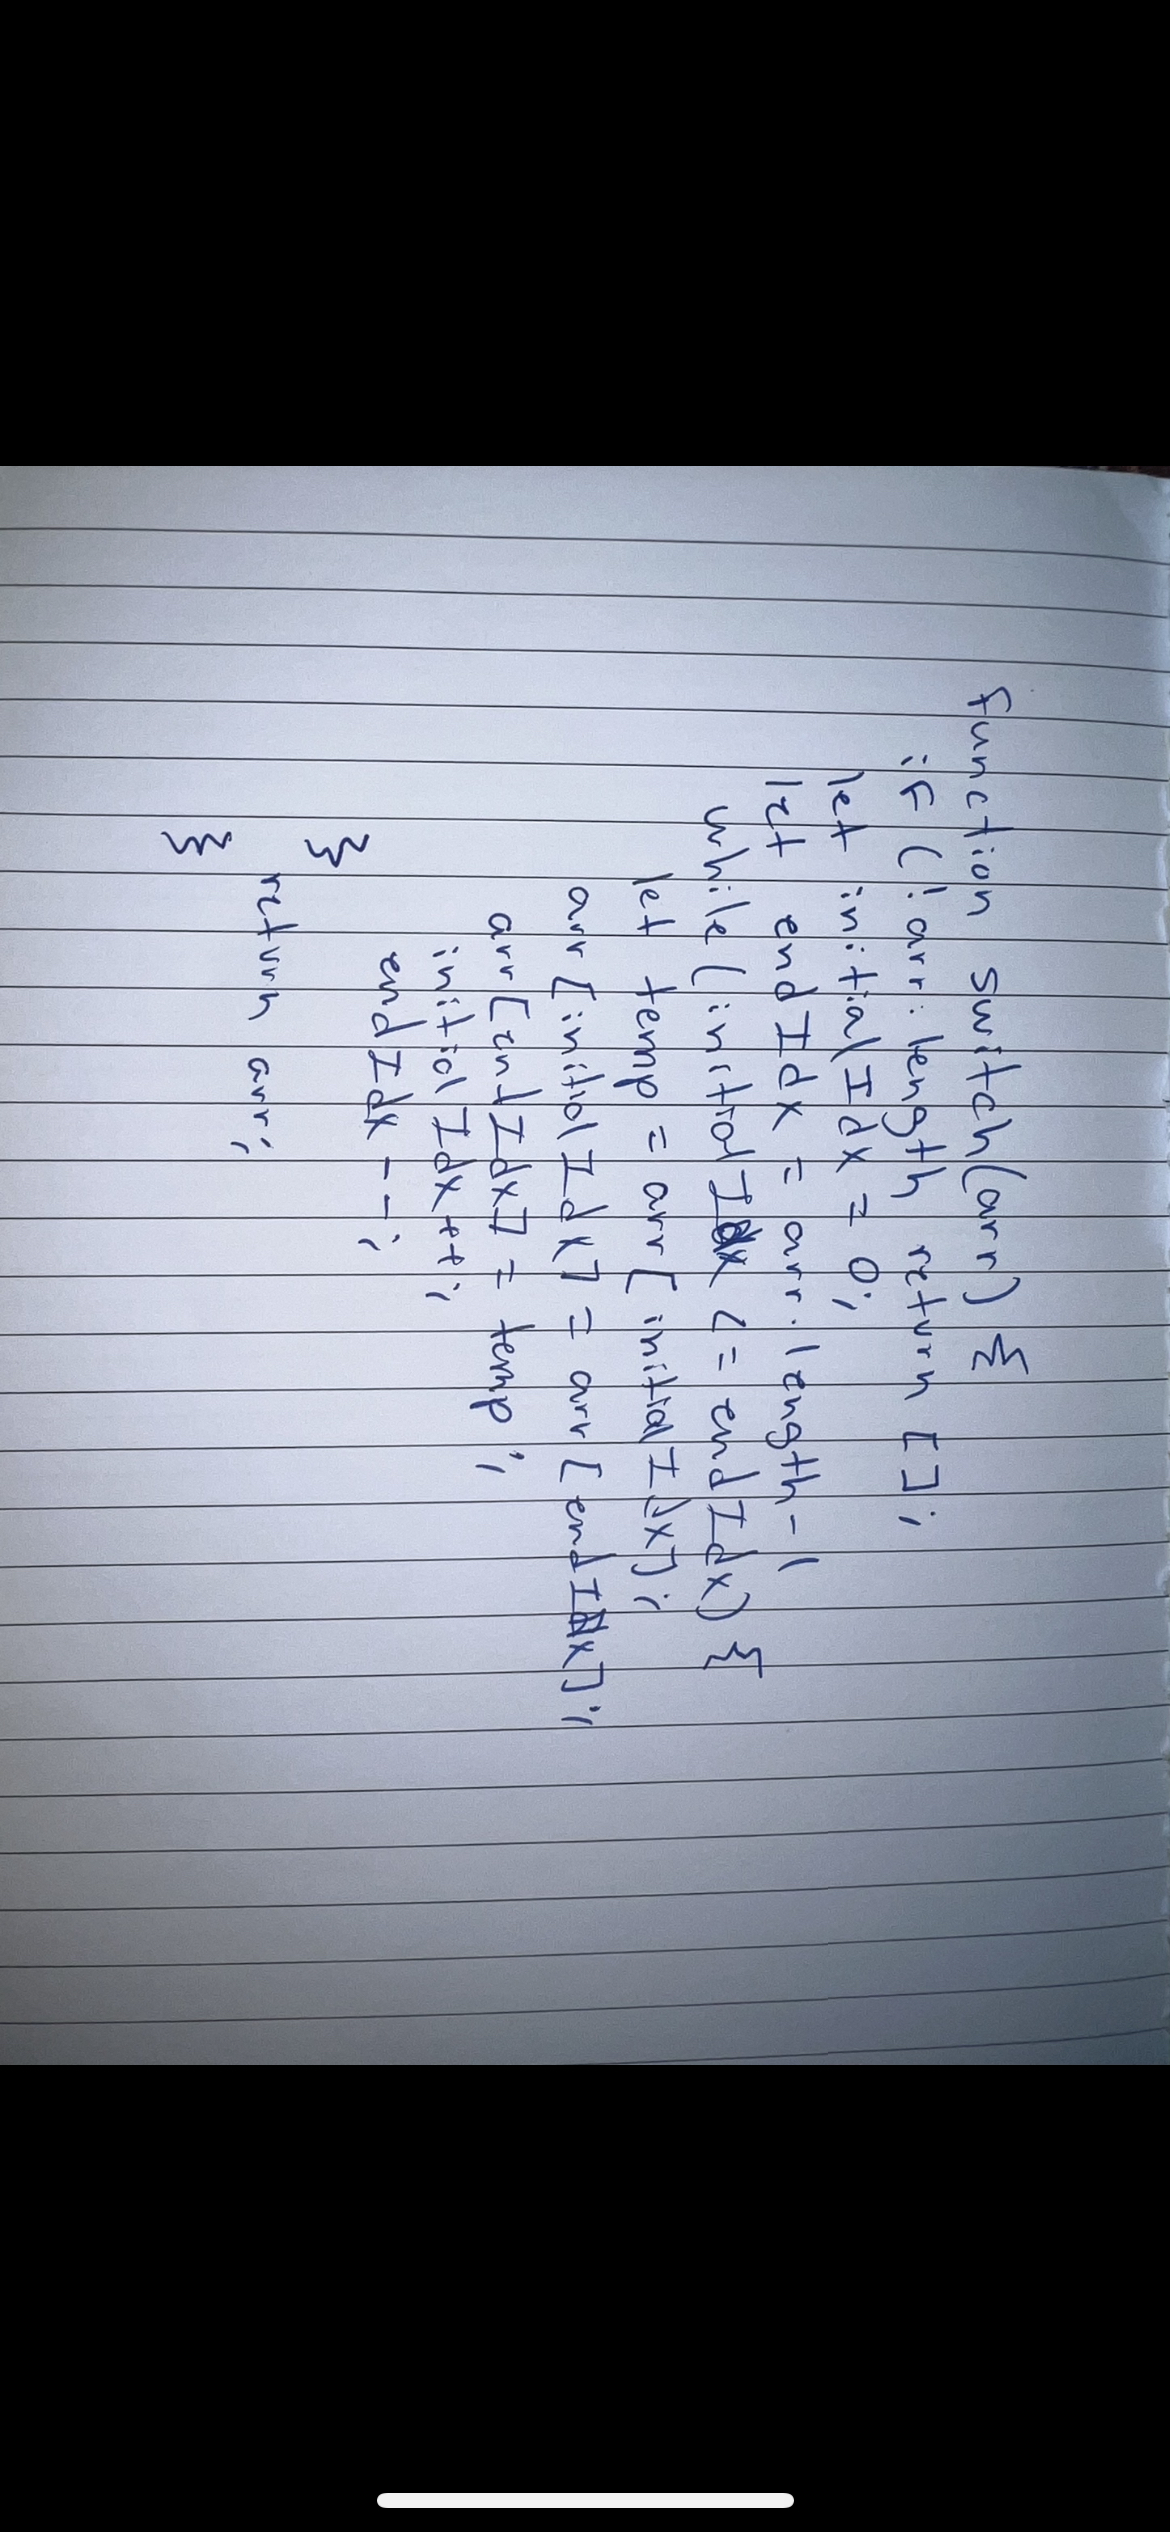 function switch(arr) {
if (!arr.length return [];
let initialIdx = 0;
let endIdx = arr.length-1
while (initialIdx <= endIdx) {
let temp = arr[initialIdx];
arr[initialIdx] = arr[endIdx];
arr[endIdx] = temp;
initialIdx++;
endIdx--;
}
return arr;
}